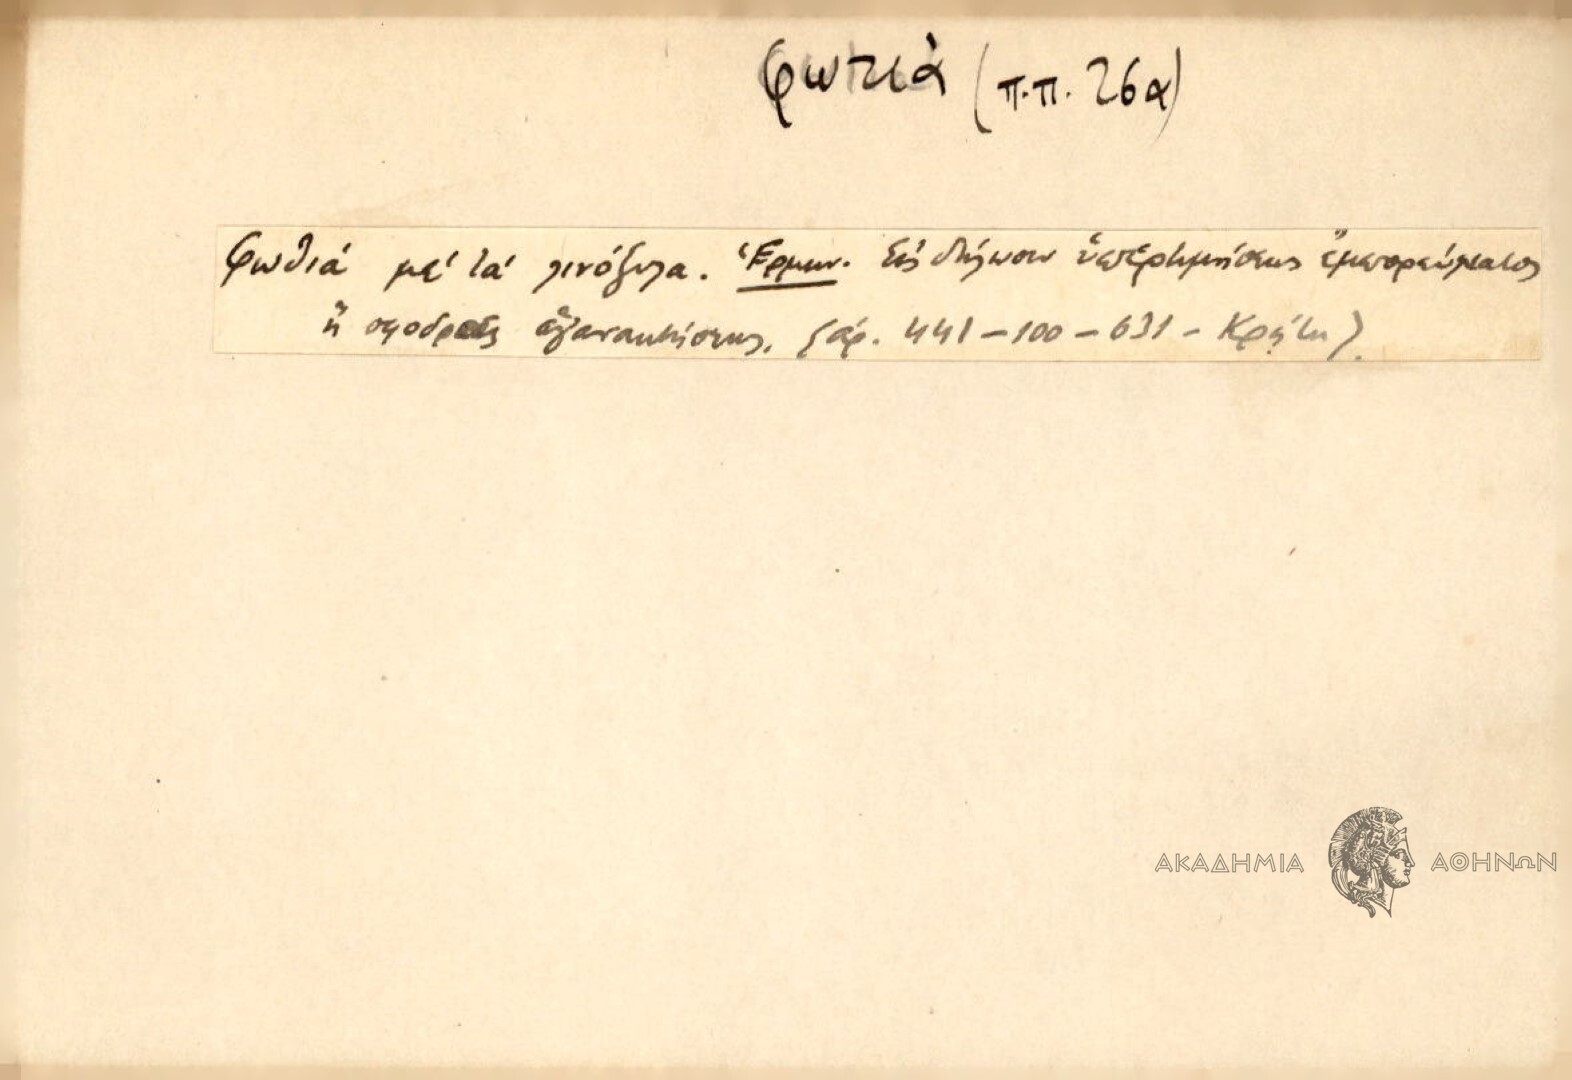 φωτιὰ (π.π. 26α)
Φωθιά μέ τά λινόξυλα. Ἑρμην. Εἰς δήλωσιν ὑπερτιμήσεως ἐμπορεύματος
ἢ σφοδρᾶς ἀγανακτήσεως. (ἀρ. 441-100-631 - Κρήτη).
ΑΚΑΔΗΜΙΑ ΑΘΗΝΩΝ